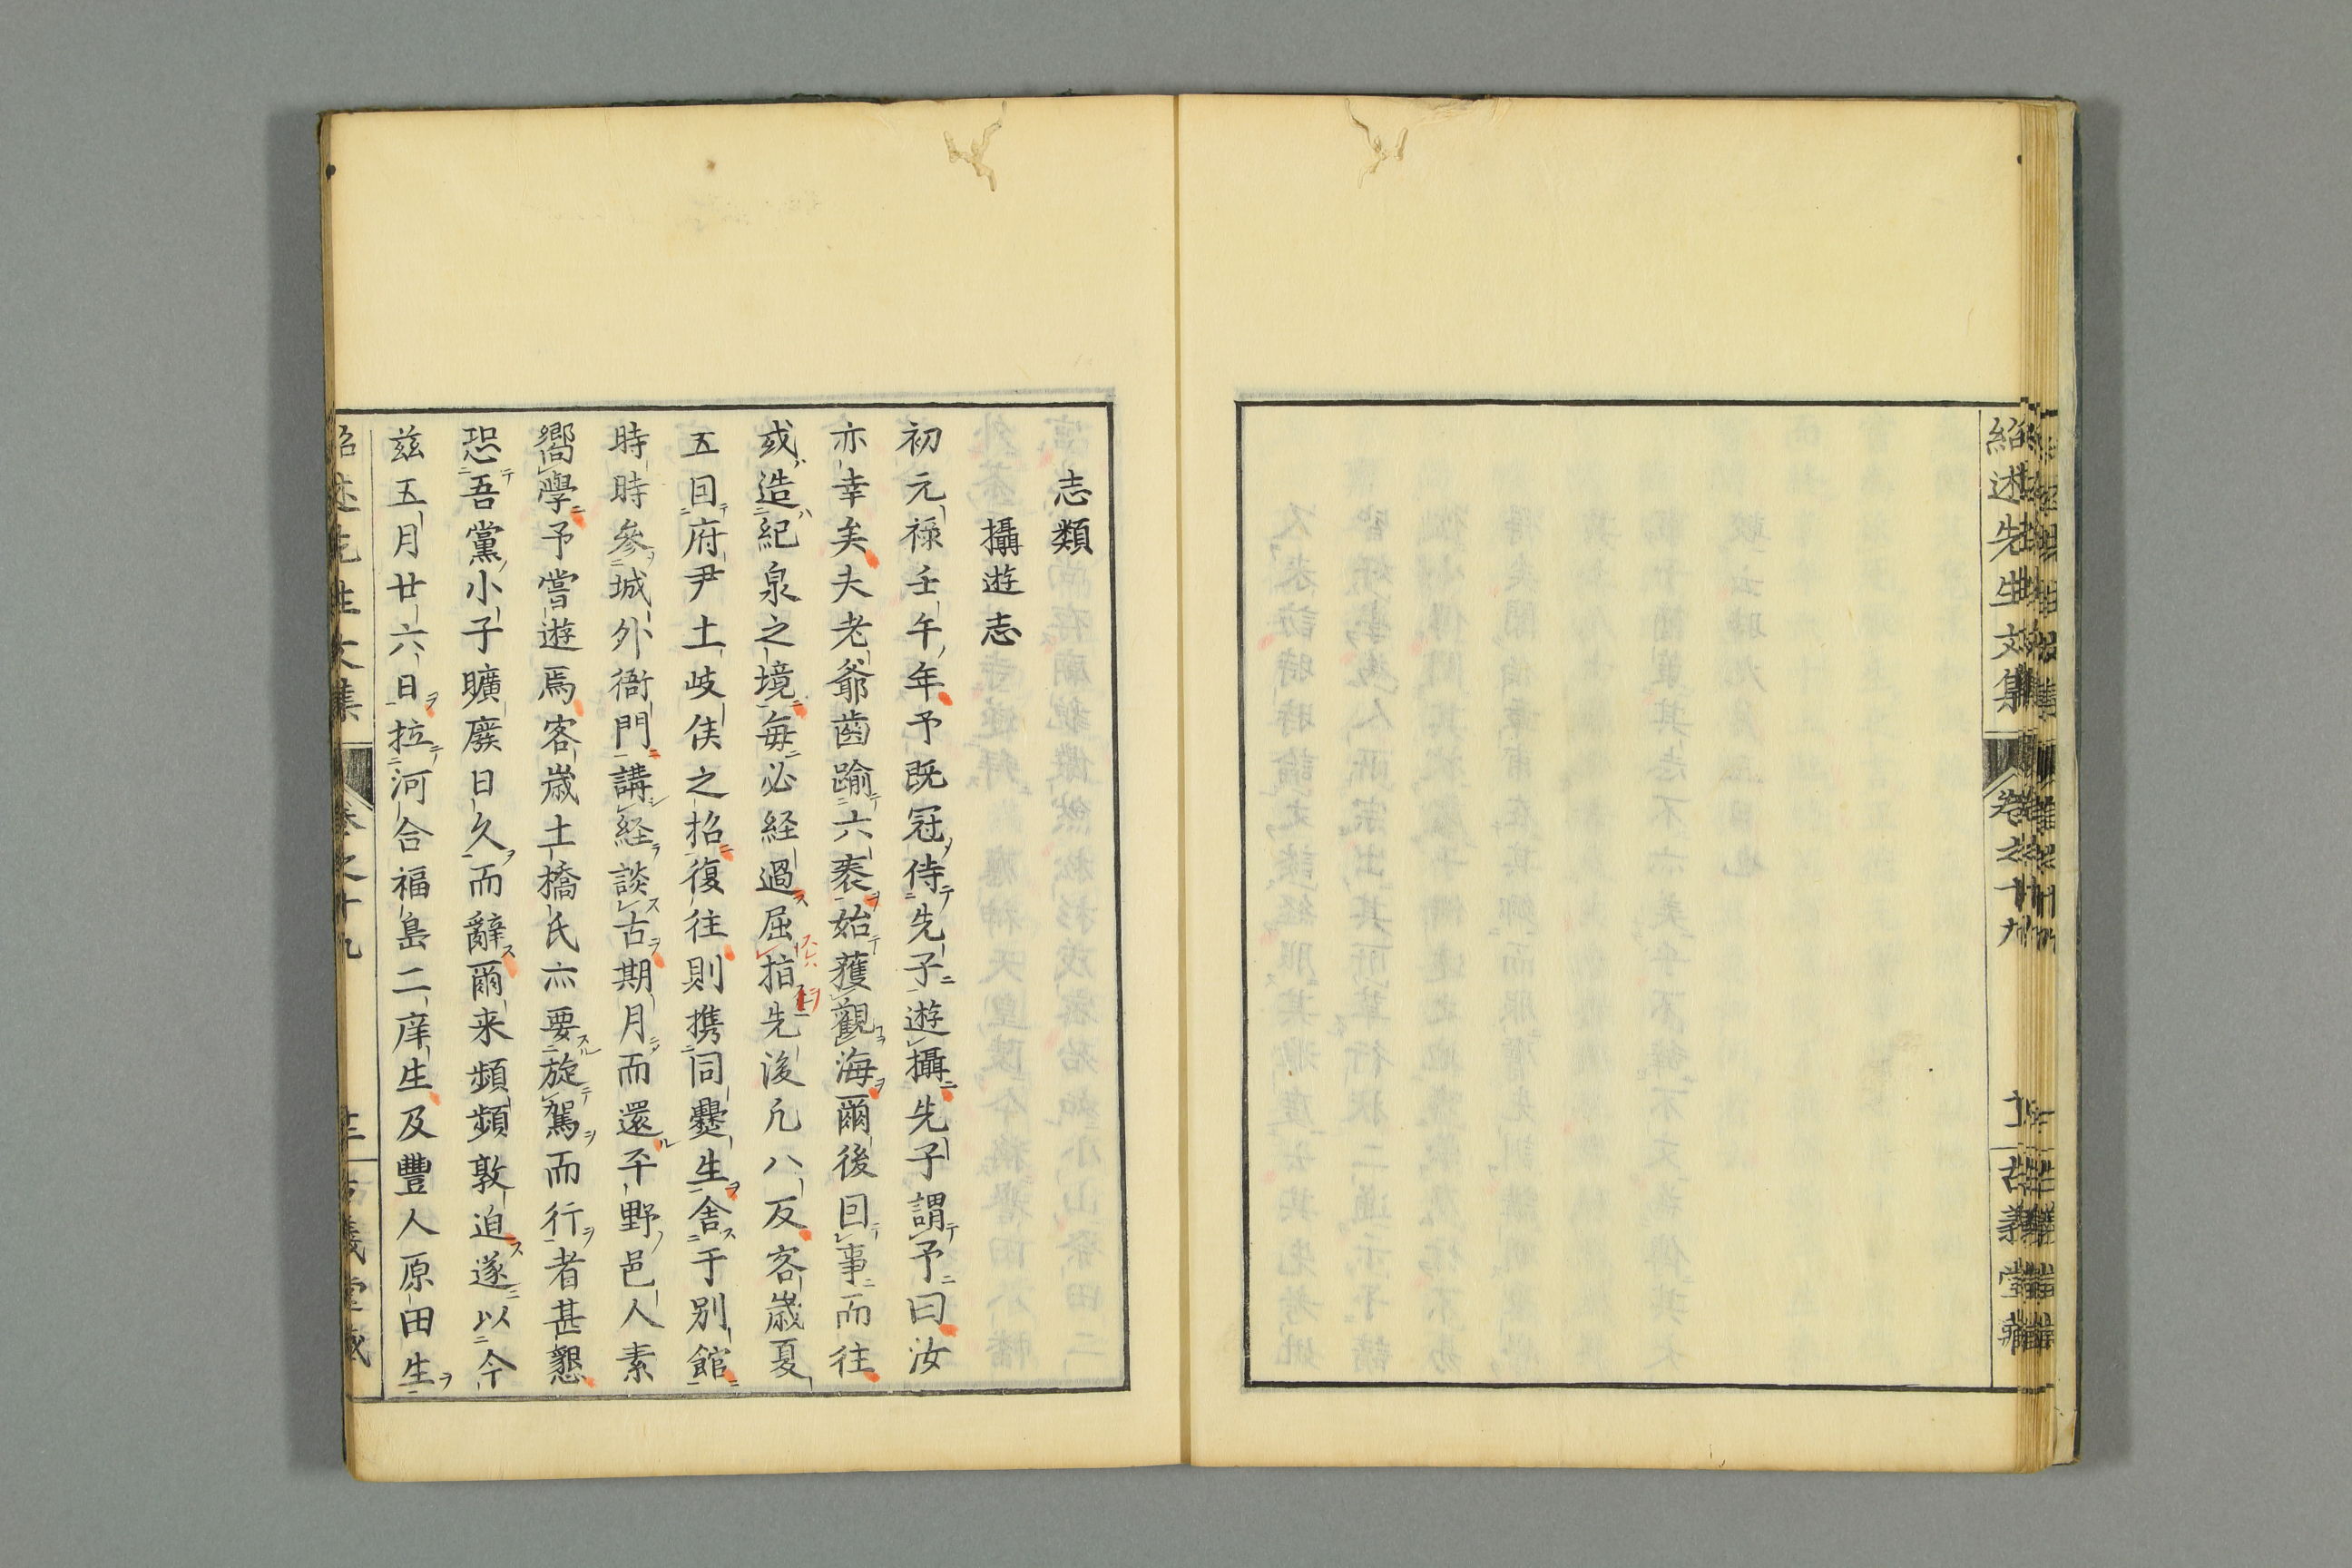 紹述先生文集
卷之十九
古義堂藏
志類
攝遊志
初元禄壬午年予既冠侍先子遊攝先子謂予曰汝
亦幸矣夫老爺齒踰六袠始獲觀海爾後回事而往
或造紀泉之境每必経過屈指先後凢八反客歳夏
五因府尹土岐侯之招復往則携同爨生舎于別館
時時參城外衙門講経談古期月而還平野邑人素
嚮學予嘗遊焉客歳土橋氏亦要旋駕而行者甚懇
恐吾黨小子曠廢日久而辭爾来頻頻敦迫遂以今
兹五月廿六日拉河合福島二庠生及豐人原田生